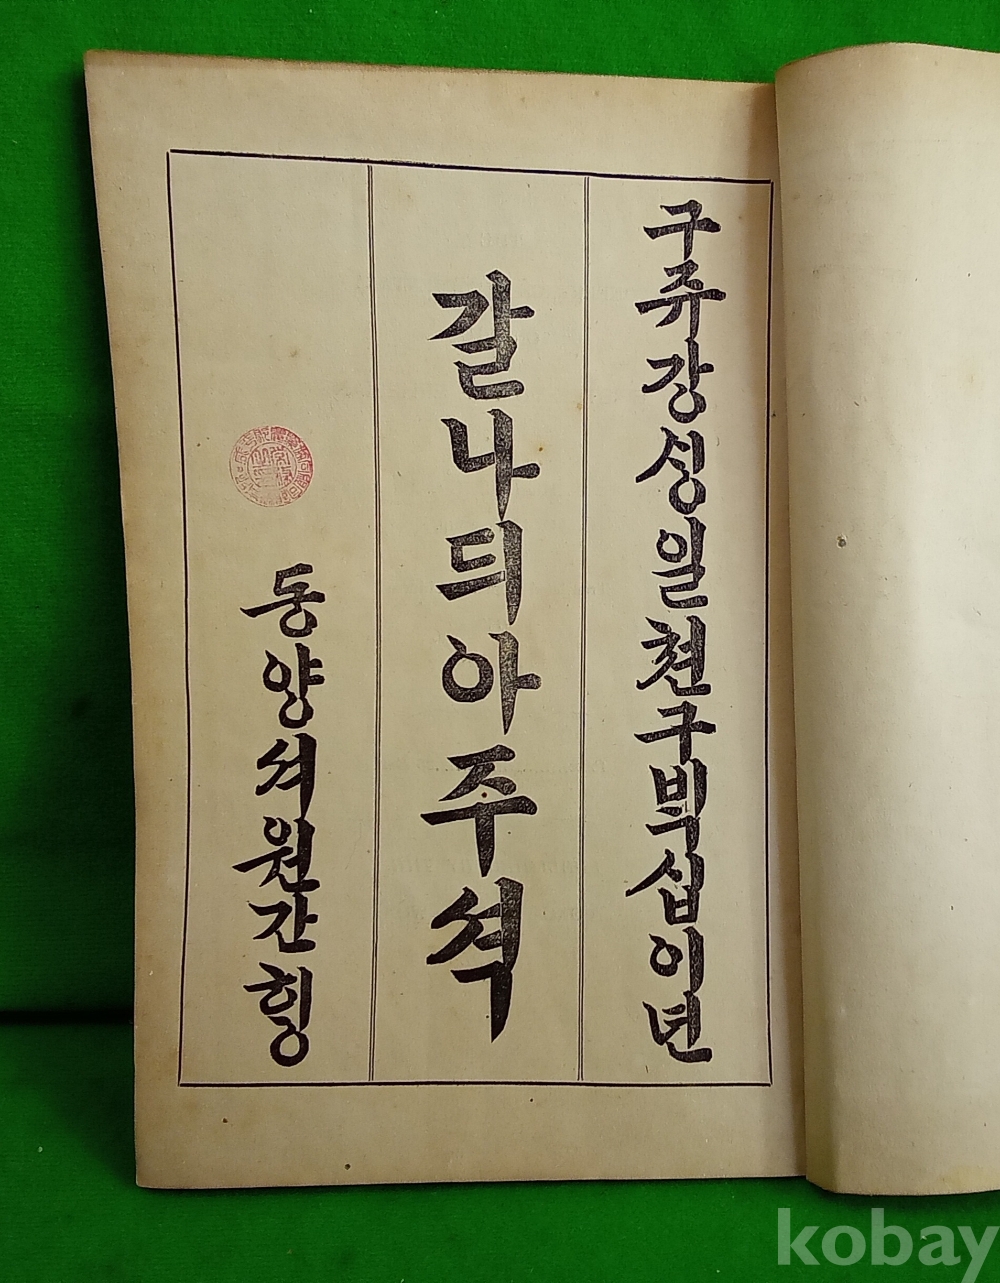 구쥬강ᄉᆡᆼ일쳔구ᄇᆡᆨ십이년
갈나듸아주셕
동양셔원간ᄒᆡᆼ
kobay